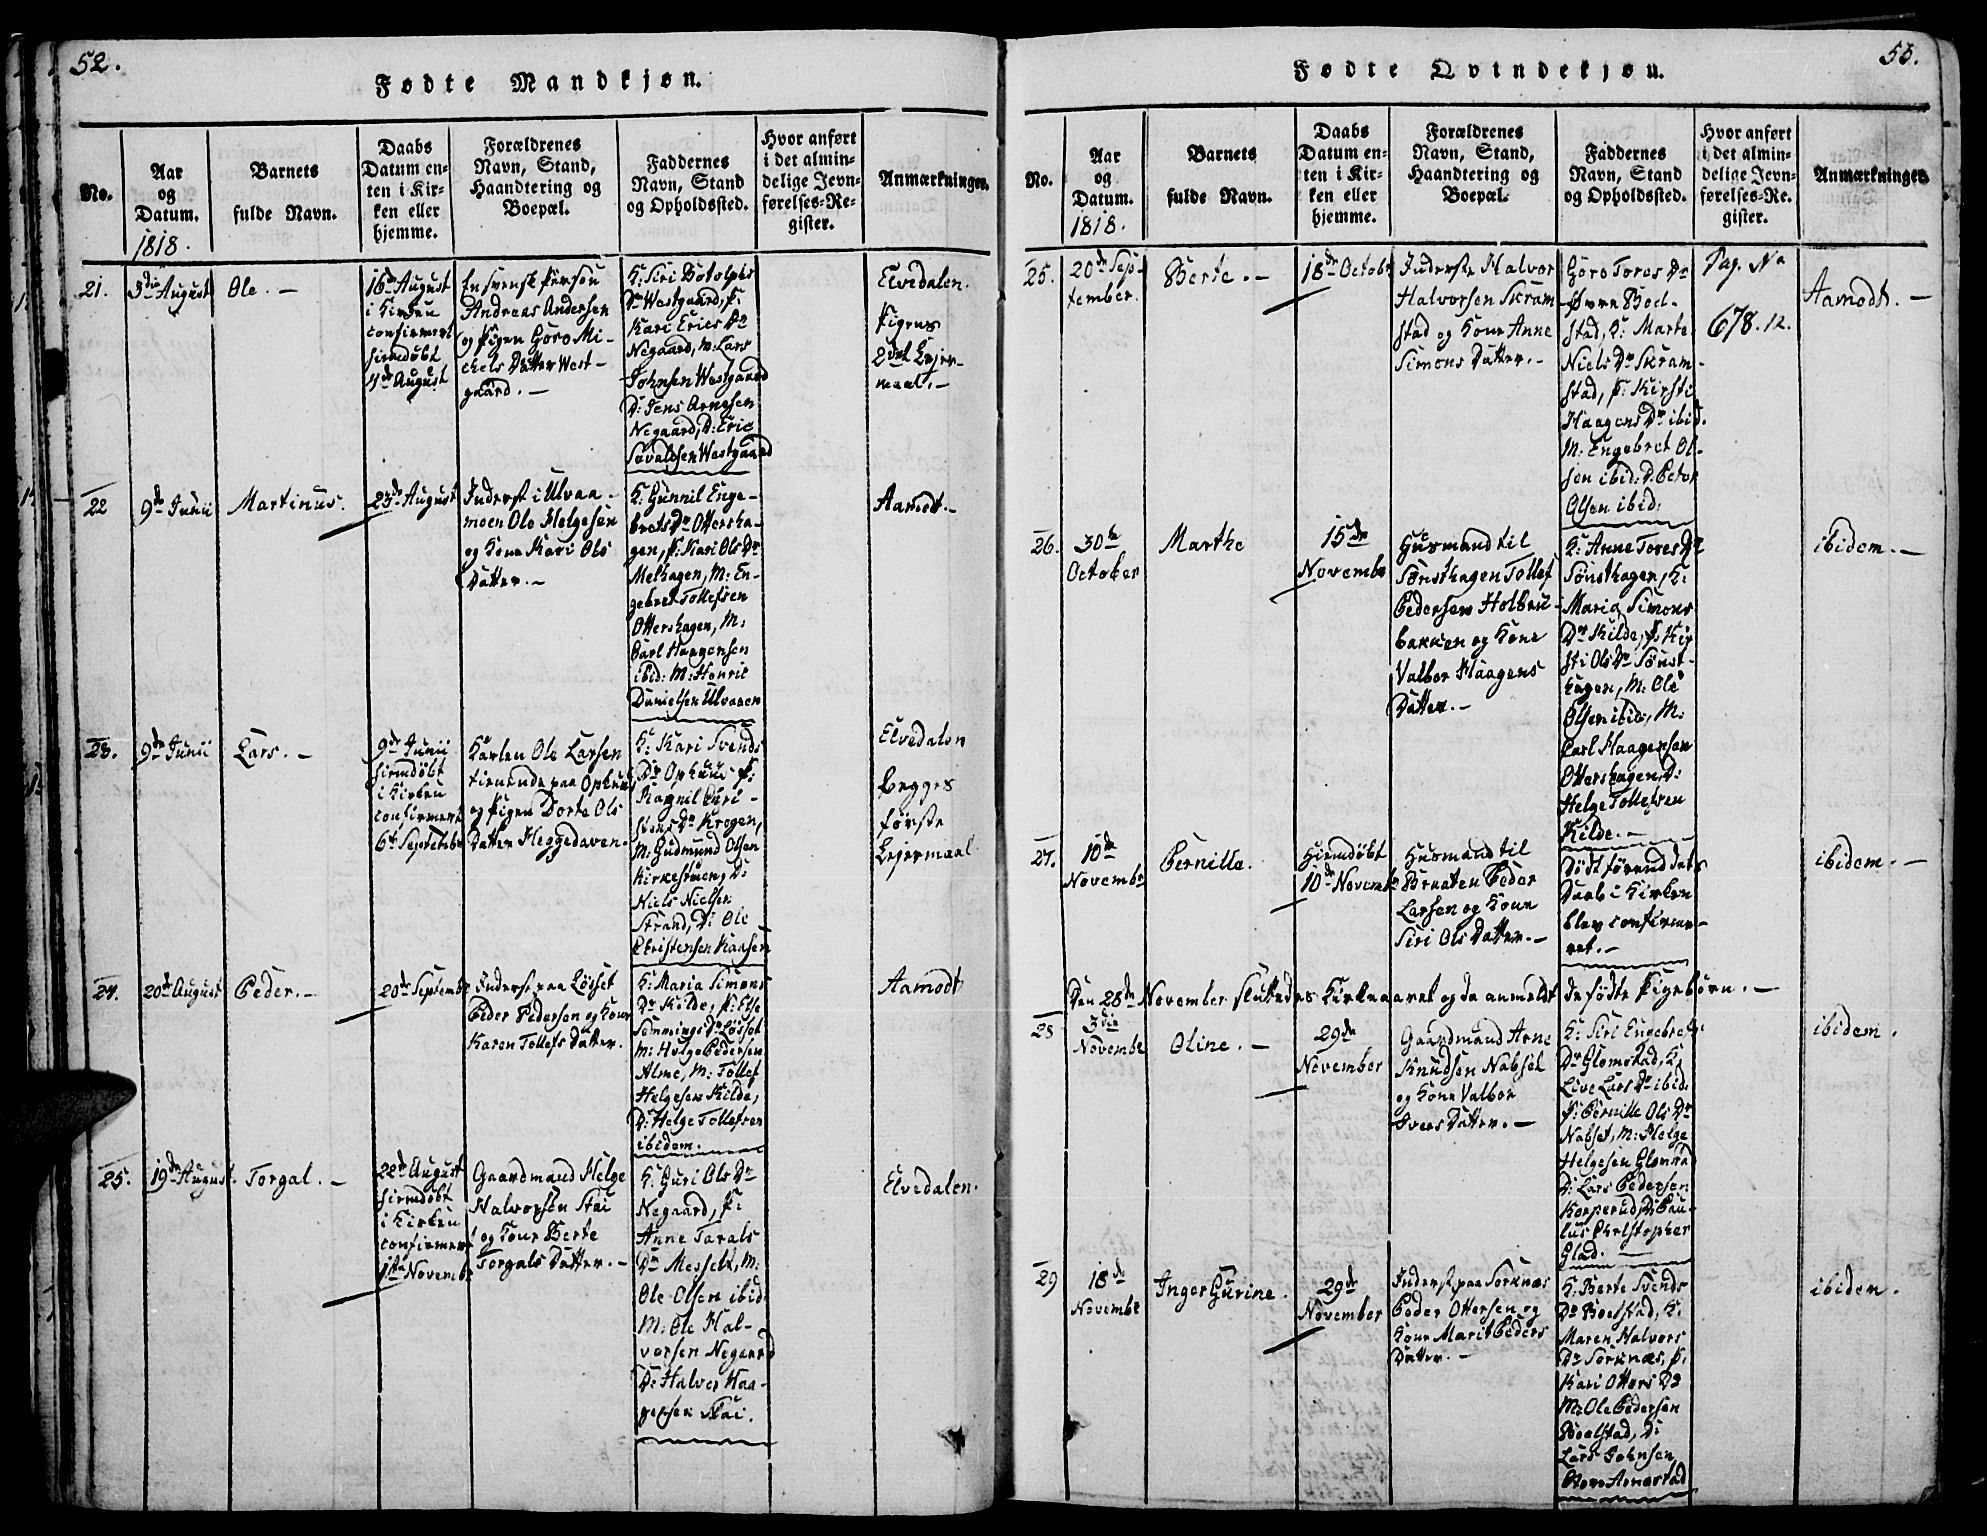 52.
Fødte Mandkjøn.
No.
Aar
og
Datum.
1818.
Barnets
fulde Navn.
Daabs
Datum en-
ten i Kir-
ken eller
hjemme.
Forældrenes
Navn, Stand,
Haandtering og
Boepæl.
Faddernes
Navn, Stand
og Opholdssted.
Hvor anført
i det almin-
delige Jevn-
førelses-Re-
gister.
Anmærkninger.
21.
3die August
Ole. -
16de August
i Kirken
confirmert
hiemdøbt
4de August
En svensk Person
Andreas Andersen
og Pigen Goro Mi-
chels Datter West-
gaard. -
K: Siri Botolphs
Dr Westgaard, P:
Kari Erics Dr
Negaard, M: Lars
Johnsen Westgaard
D: Jens Arnesen
Negaard, D: Eric
Westgaard
Elvedalen.
Pigens
2det Lejer-
maal. -
22
9de Junii
Martinus.
23de August
Inderst i Ulvaa-
moen Ole Helgesen
og Kone Kari Ols
Datter. -
K: Gunnil Enge-
brets Dr Ottersha-
gen, P: Kari Ols Dr
Melhagen, M: En-
gebret Tollefsen
Ottershagen, M:
Carl Haagensen
ibid: M: Henric
Danielsen Ulvaaen
Aamodt. -
23.
9de Junii
Lars. -
9de Junii
hiemdøbt
i Kirken
confirmert
6te Septebr
Karlen Ole Larsen
tienende paa Ophuus
og Pigen Dorte Ols
Datter Heggedaven.
K: Kari Svends
Dr Ophuus P:
Ragnil Chri-
stens Dr Krogen,
M: Gudmund Olsen
Kirkestuen, D:
Niels Nielsen
Strand, D: Ole
Christensen Kaasen
Elvedalen
Begges
første
Lejermaal
24.
20de August
Peder. -
20de Septembr
Inderst paa Løsset
Peder Pedersen og Kone
Karen Tollefs Datter.
K: Maria Simons
Dr Kilde, P: Else
Semmings Dr Løsset
M: Helge Pedersen
Alme, M: Tollef
Helgesen Kilde,
D: Helge Tollefsen
ibidem.
Aamodt
25.
19de August.
Torgal. -
22de August
hiemdøbt
i Kirken
confirmert
1ste Novembr
Gaardmand Helge
Halvorsen Stai
og Kone Berte
Torgals Datter. -
K: Guri Ols Dr
Negaard, P:
Anne Tarals
Dr Messelt, M:
Ole Olsen ibid
M: Ole Hal-
vorsen Negaard
D: Halvor Haa-
gensen Stai.
Elvedalen.
53.
Fødte Qvindekjøn.
No.
Aar
og
Datum.
1818.
Barnets
fulde Navn.
Daabs
Datum en-
ten i Kir-
ken eller
hjemme.
Forældrenes
Navn, Stand,
Haandtering og
Boepæl.
Faddernes
Navn, Stand
og Opholdssted.
Hvor anført
i det almin-
delige Jevn-
førelses-Re-
gister.
Anmærkninger
25.
20de Sep-
tember.
Berte. -
18de Octobr
Inderste Halvor
Halvorsen Skram
stad og Kone Anne
Simons Datter. -
Goro Tores Dr
Øvre Bol-
stad, K: Marte
Niels Dr Skram-
stad, P: Kirsti
Haagens Dr ibid.
M: Engebret Ol-
sen ibid: D: Peter
Olsen ibid:
Pag. No
678. 12.
Aamodt. -
26.
30te
October
Marthe
15de
Novembr
Husmand til
Sønsthagen Tollef
Pedersen Holbru-
bakken og Kone
Valbor Haagens
Datter. -
K: Anne Tores Dr
Sønsthagen, K:
Maria Simons
Dr Kilde, P: Kir
sti Ols Dr Sønst-
hagen, M: Ole
Olsen ibid:, M:
Carl Haagensen
Ottershagen, D:
Helge Tollefsen
Kilde. -
ibidem. -
27.
10de
Novembr
Pernille.
Hiemdøbt
10de Novembr
Husmand til
Braaten Peder
Larsen og Kone
Siri Ols Datter. -
Død førend dets
Daab i Kirken
blev confirme-
ret. -
ibidem. -
Den 28de November sluttedes Kirkeaaret og da anmeldt de fødte Pigebørn. -
28
3die
Novembr
Oline. -
29de
November
Gaardmand Arne
Knudsen Nabset
og Kone Valbor
Ivers Datter. -
K: Siri Engebrets
Dr Glomstad, K:
Live Lars Dr ibid:
P: Pernille Ols Dr
Nabset, M: Helge
Helgesen Glomstad
D: Lars Pedersen
Korperud, D: Pau-
lus Christopher
Glad.
ibidem.
29
18de
Novembr
Inger Gurine.
29de
November
Inderst paa Sorknæs
Peder Ottersen og
Kone Marit Peders
Datter. -
K: Berte Svends
Dr Bolstad, K:
Maren Halvors
Dr Sorknæs, P:
Kari Otters Dr
M: Ole Pedersen
Bolstad, D:
Lars Johnsen
Arnestad
ibidem.